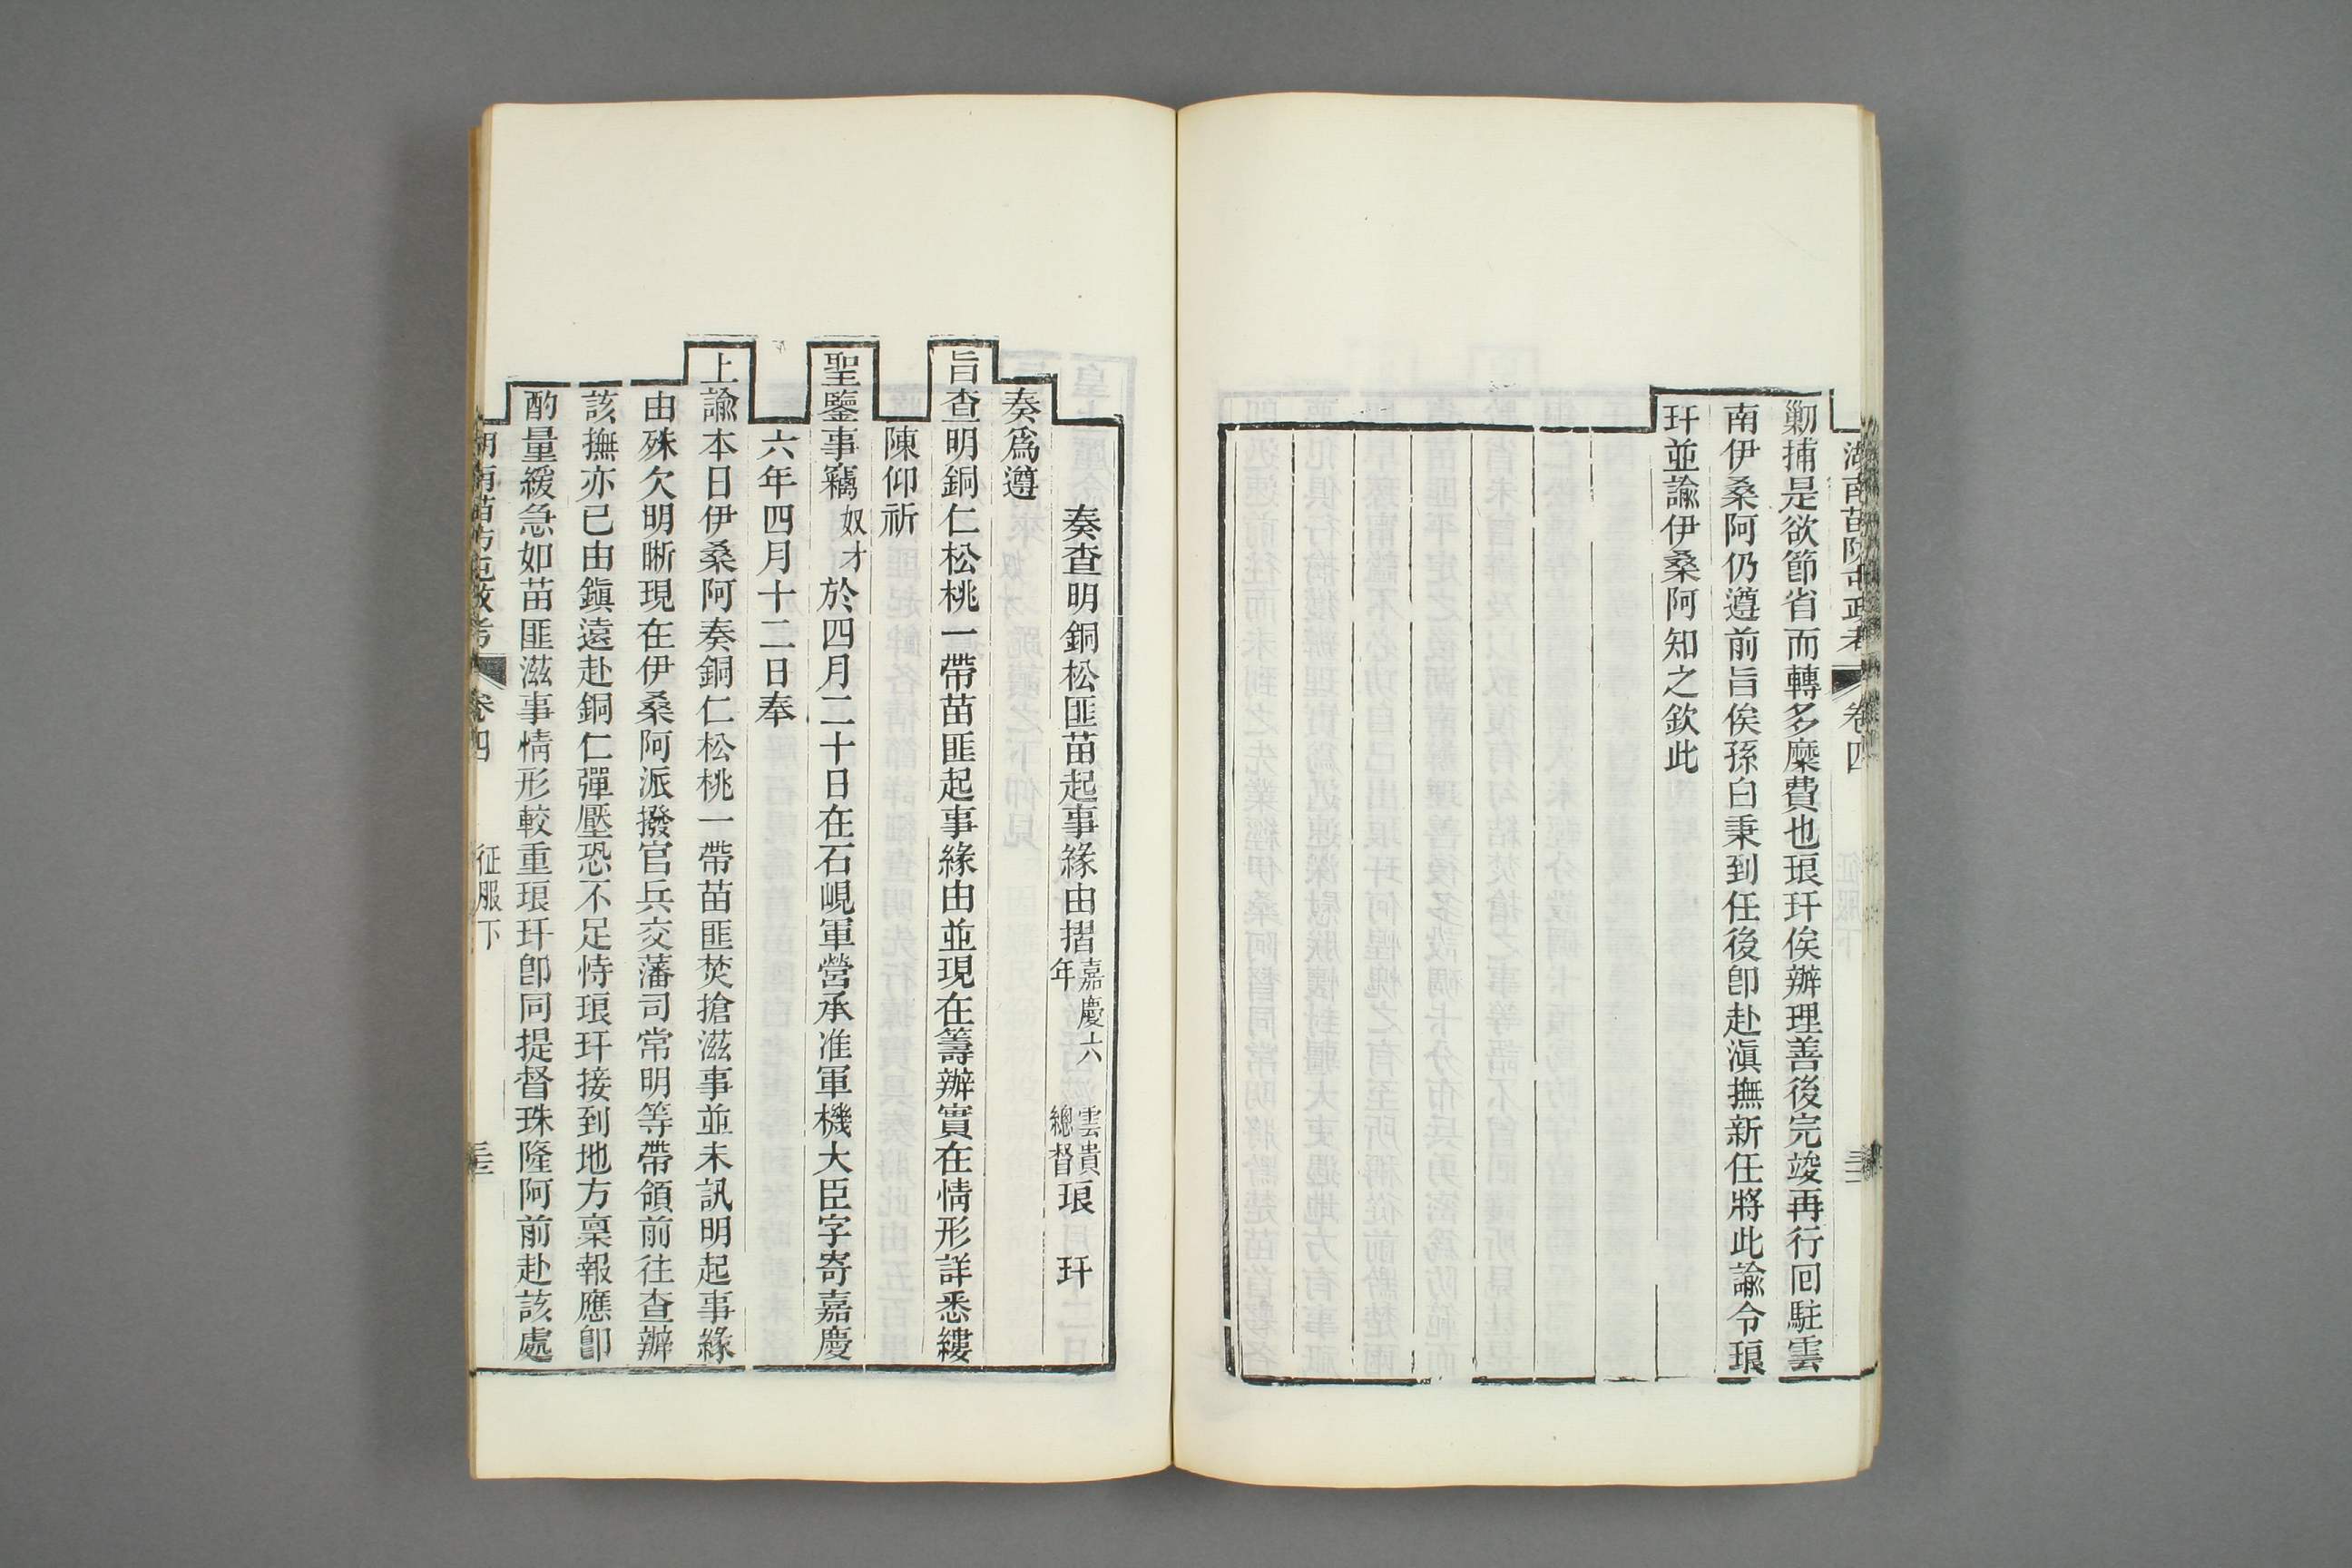 湖南苗防屯政考 卷四
勦捕是欲節省而轉多糜費也琅玕俟辦理善後完竣再行回駐雲
南伊桑阿仍遵前旨俟孫曰秉到任後卽赴滇撫新任將此諭令琅
玕並諭伊桑阿知之欽此
奏查明銅松匪苗起事緣由摺 嘉慶六年 雲貴總督 琅玕
奏爲遵
旨查明銅仁松桃一帶苗匪起事緣由並現在籌辦實在情形詳悉縷
陳仰祈
聖鑒事竊奴才於四月二十日在石峴軍營承准軍機大臣字寄嘉慶
六年四月十二日奉
上諭本日伊桑阿奏銅仁松桃一帶苗匪焚搶滋事並未訊明起事緣
由殊欠明晰現在伊桑阿派撥官兵交藩司常明等帶領前往查辦
該撫亦已由鎭遠赴銅仁彈壓恐不足恃琅玕接到地方稟報應卽
酌量緩急如苗匪滋事情形較重琅玕卽同提督珠隆阿前赴該處
湖南苗防屯政考 卷四 征服下